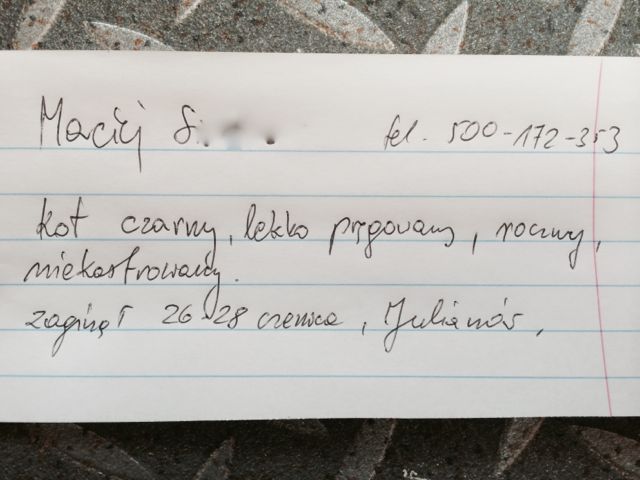 Maciej S. tel. 500-172-353
kot czarny, lekko pręgowany, roczny,
niekastrowany.
zaginął 26-28 czerwca, Julianów,